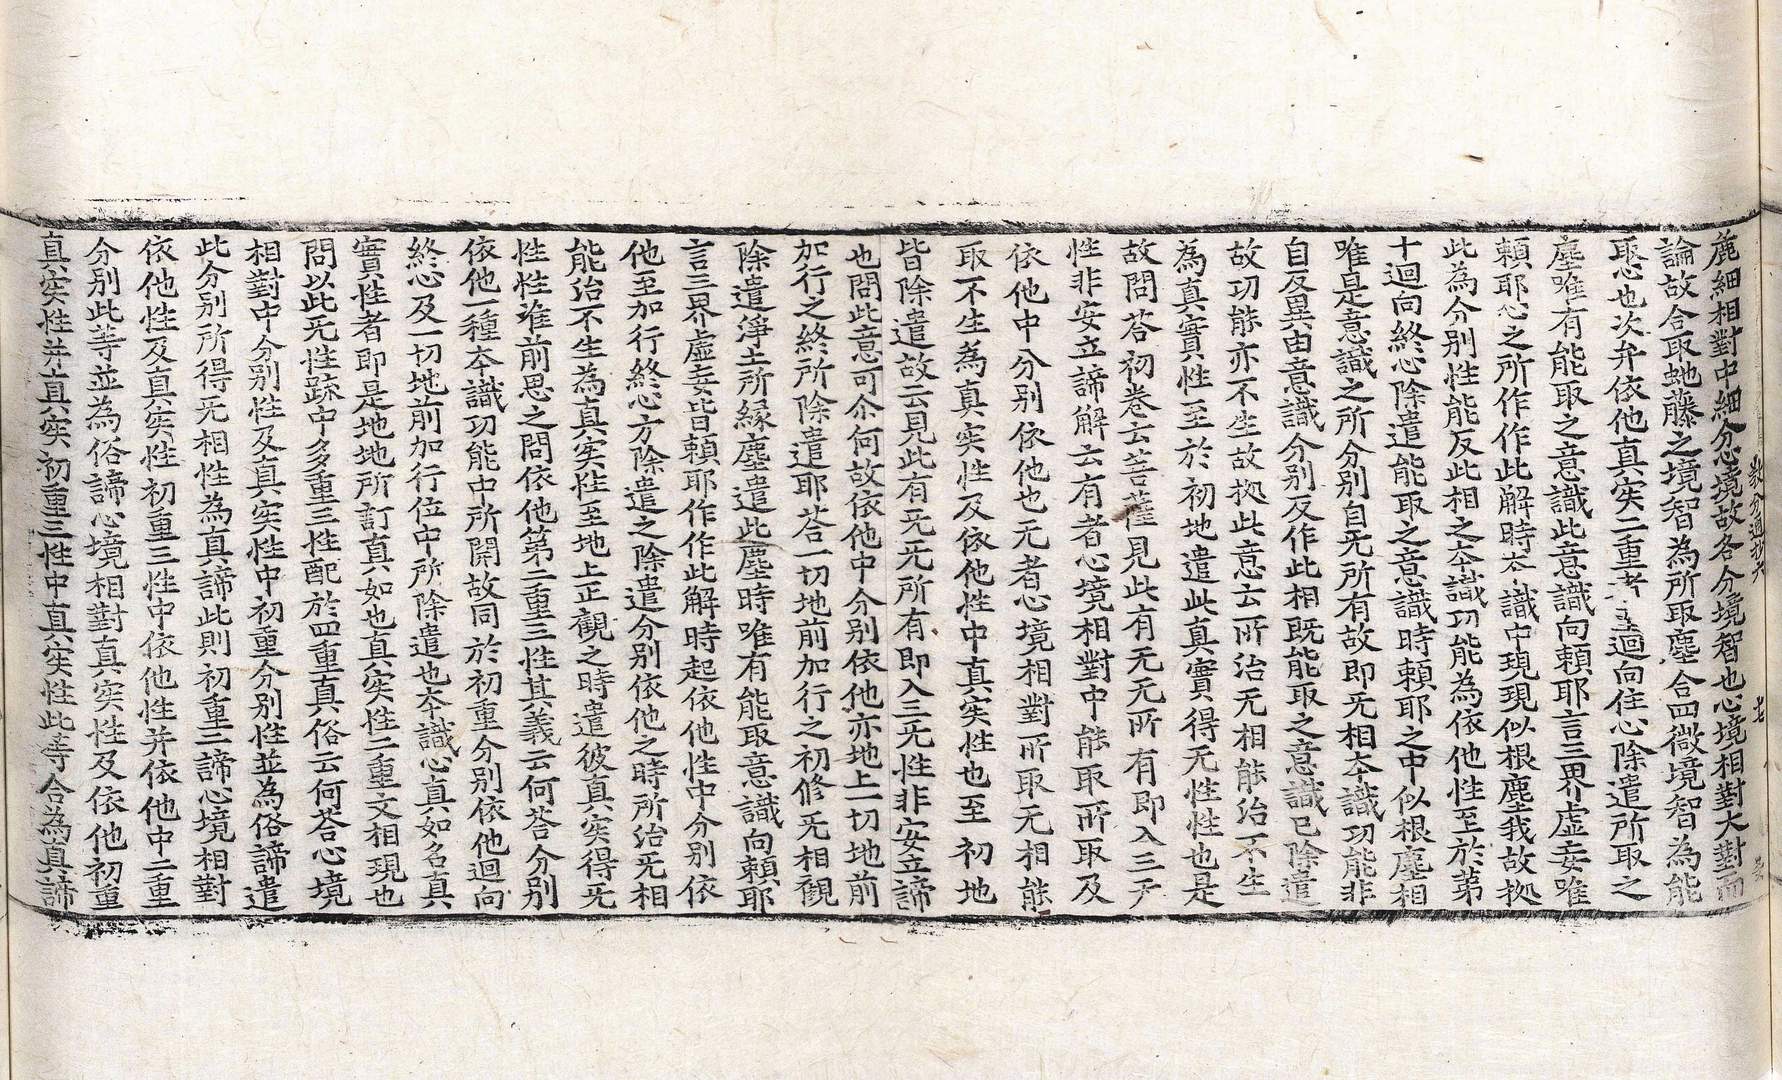 麁細相對中細分心境故各分境智也心境相對大對而
論故合取虵藤之境智為所取塵合四微境智為能
取心也次弁依他真実二重者 至迴向住心除遣所取之
塵唯有能取之意識此意識向頼耶言三界虛妄唯
頼耶心之所作作此解時夲識中現現似根塵我故拠
此為分別性能反此相之夲識功能為依他性至於苐
十迴向終心除遣能取之意識時頼耶之中似根塵相
唯是意識之所分別自无所有故即无相夲識功能非
自反異由意識分別反作此相既能取之意識已除遣
故功能亦不生故拠此意云所治无相能治不生
為真實性至於初地遣此真實得无性性也是
故問荅初卷云菩薩見此有无无所有即入三无
性非安立諦解云有者心境相對中能取所取及
依他中分別依他也无者心境相對所取无相能
取不生為真実性及依他性中真実性也至初地
皆除遣故云見此有无无所有即入三无性非安立諦
也問此意可尒何故依他中分別依他亦地上一切地前
加行之終所除遣耶荅一切地前加行之初修无相觀
除遣淨土所縁塵遣此塵時唯有能取意識向頼耶
言三界虛妄皆頼耶作作此解時起依他性中分別依
他至加行終心方除遣之除遣分別依他之時所治无相
能治不生為真実性至地上正觀之時遣彼真実得无
性性准前思之問依他苐二重三性其義云何荅分別
依他一種夲識功能中所開故同於初重分別依他迴向
終心及一切地前加行位中所除遣也夲識心真如名真
實性者即是地地所訂真如也真実性二重文相現也
問以此无性䟽中多重三性配於四重真俗云何荅心境
相對中分別性及真実性中初重分別性並為俗諦遣
此分別所得无相性為真諦此則初重二諦心境相對
依他性及真実性初重三性中依他性并依他中二重
分別此等並為俗諦心境相對真実性及依他初重
真実性并真実初重三性中真実性此等合為真諦
教分通抄六
七